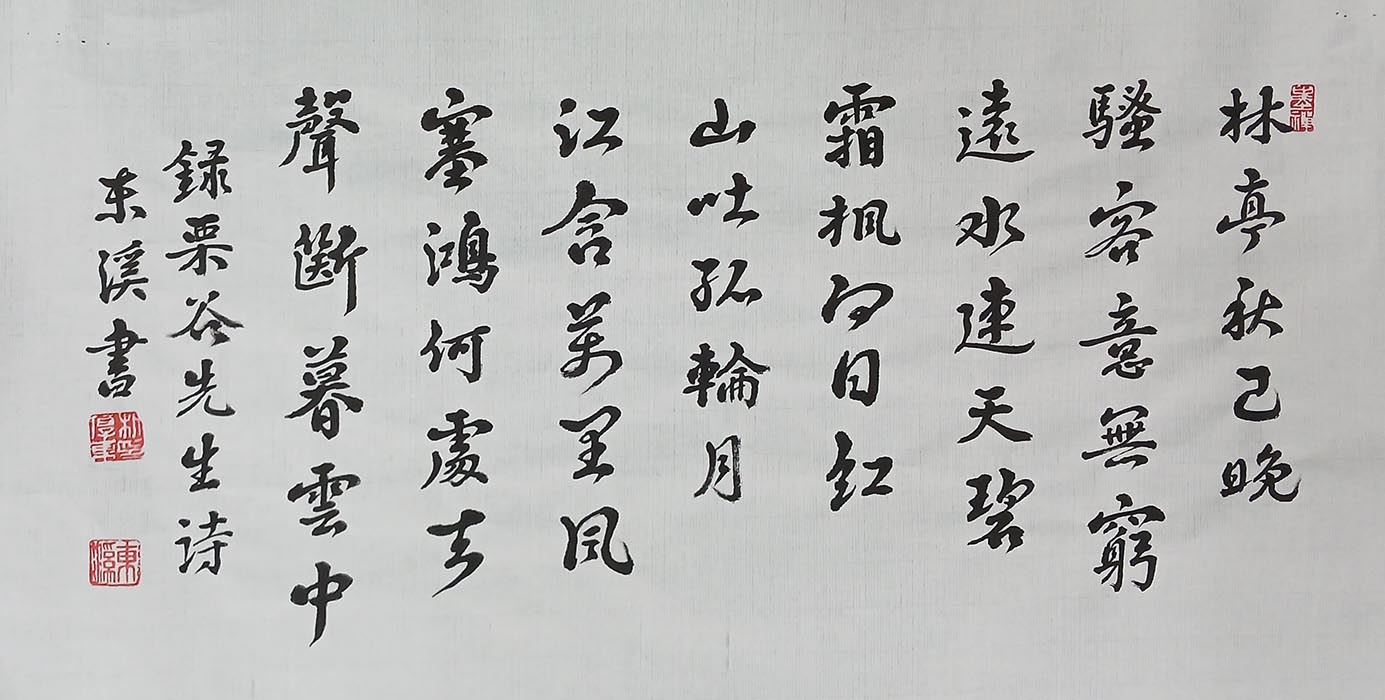 林亭秋已晚
騷客意無窮
遠水連天碧
霜楓向日紅
山吐孤輪月
江含萬里風
塞鴻何處去
聲斷暮雲中
録栗谷先生詩
東溪書
東溪